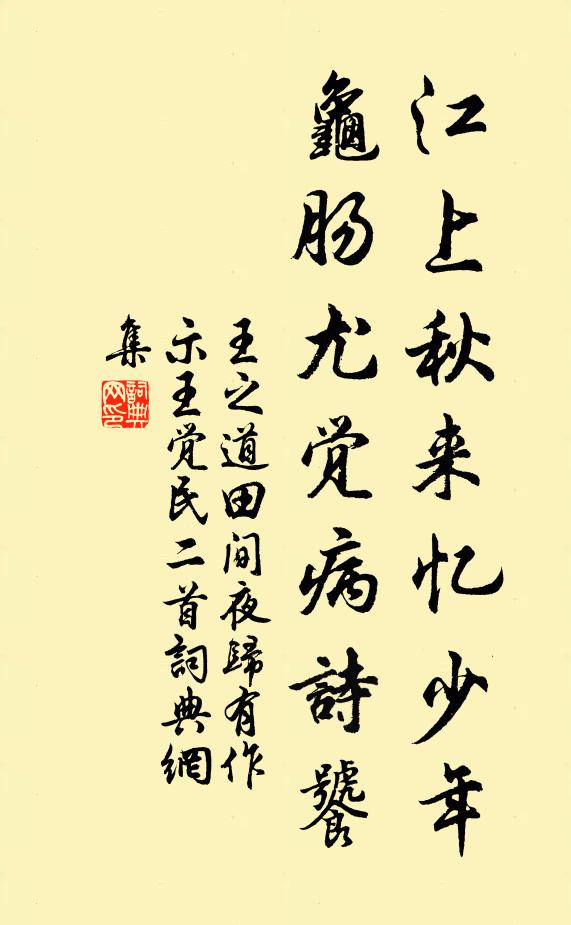 江上秋来忆少年
龜肠尤觉病詩饕
王之道田间夜歸有作
示王觉民二首詞典網
集
詞典
网印